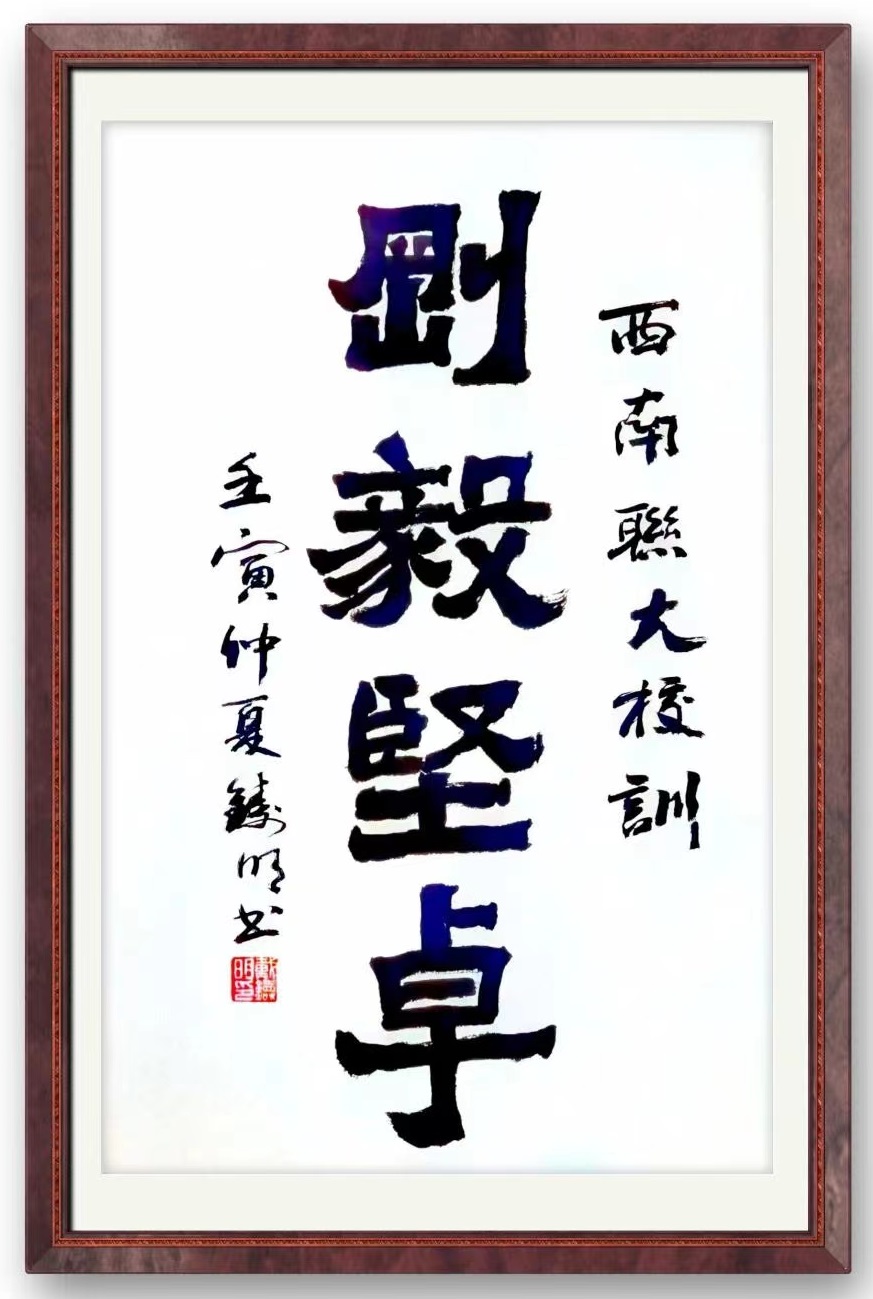 西南聯大校訓
剛毅堅卓
壬寅仲夏鑄明书
戴鑄明印